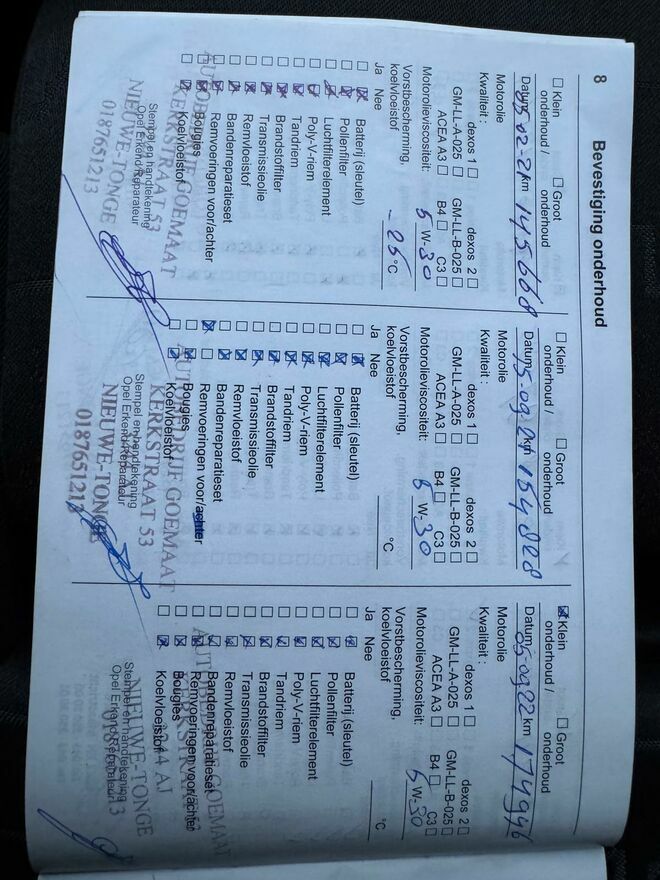 8 Bevestiging onderhoud
Klein onderhoud /
Groot onderhoud
Datum 05-02-21 km 145668
Motorolie
Kwaliteit :
dexos 1 dexos 2
GM-LL-A-025 GM-LL-B-025
ACEA A3 B4 C3
Motorolieviscositeit: 5 W-30
Vorstbescherming,
koelvloeistof -25 °C
Ja Nee
Batterij (sleutel)
Pollenfilter
Luchtfilterelement
Poly-V-riem
Tandriem
Brandstoffilter
Transmissieolie
Remvloeistof
Bandenreparatieset
Remvoeringen voor/achter
Bougies
Koelvloeistof
Stempel en handtekening
Opel Erkend Reparateur
GOEMAAT
KERKSTRAAT 53
NIEUWE-TONGE
0187651213
Klein onderhoud /
Groot onderhoud
Datum 15-09-21 km 154828
Motorolie
Kwaliteit :
dexos 1 dexos 2
GM-LL-A-025 GM-LL-B-025
ACEA A3 B4 C3
Motorolieviscositeit: 5 W-30
Vorstbescherming,
koelvloeistof °C
Ja Nee
Batterij (sleutel)
Pollenfilter
Luchtfilterelement
Poly-V-riem
Tandriem
Brandstoffilter
Transmissieolie
Remvloeistof
Bandenreparatieset
Remvoeringen voor/achter
Bougies
Koelvloeistof
Stempel en handtekening
Opel Erkend Reparateur
AUTOBEDRIJF GOEMAAT
KERKSTRAAT 53
NIEUWE-TONGE
0187651213
Klein onderhoud /
Groot onderhoud
Datum 05-09-22 km 174946
Motorolie
Kwaliteit :
dexos 1 dexos 2
GM-LL-A-025 GM-LL-B-025
ACEA A3 B4 C3
Motorolieviscositeit: 5 W-30
Vorstbescherming,
koelvloeistof °C
Ja Nee
Batterij (sleutel)
Pollenfilter
Luchtfilterelement
Poly-V-riem
Tandriem
Brandstoffilter
Transmissieolie
Remvloeistof
Bandenreparatieset
Remvoeringen voor/achter
Bougies
Koelvloeistof
Stempel en handtekening
Opel Erkend Reparateur
GOEMAAT
NIEUWE-TONGE